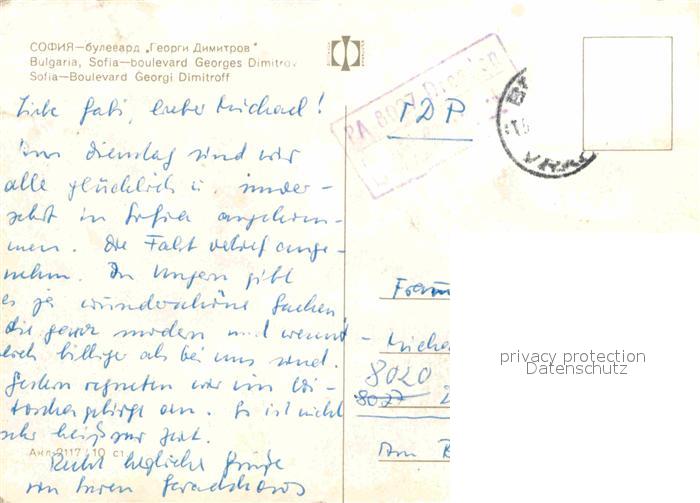 СОФИЯ—булевард „Георги Димитров“
Bulgaria, Sofia—boulevard Georges Dimitrov
Sofia—Boulevard Georgi Dimitroff
Liebe Gabi, lieber Michael!
Am Dienstag sind wir
alle glücklich u. unver-
sehrt in Sofia angekom-
men. Die Fahrt verlief ange-
nehm. In Ungarn gibt
es ja wunderschöne Sachen
die ganz modern und wesent-
lich billiger als bei uns sind.
Gestern wir im Wi-
toschagebirge an. Es ist nicht
sehr heiß zur Zeit.
Recht herzliche Grüße
von Ihren
PA 8027 Dresden
TDP
VRAC
Fram
Michae
8020
8027
Am R
privacy protection
Datenschutz